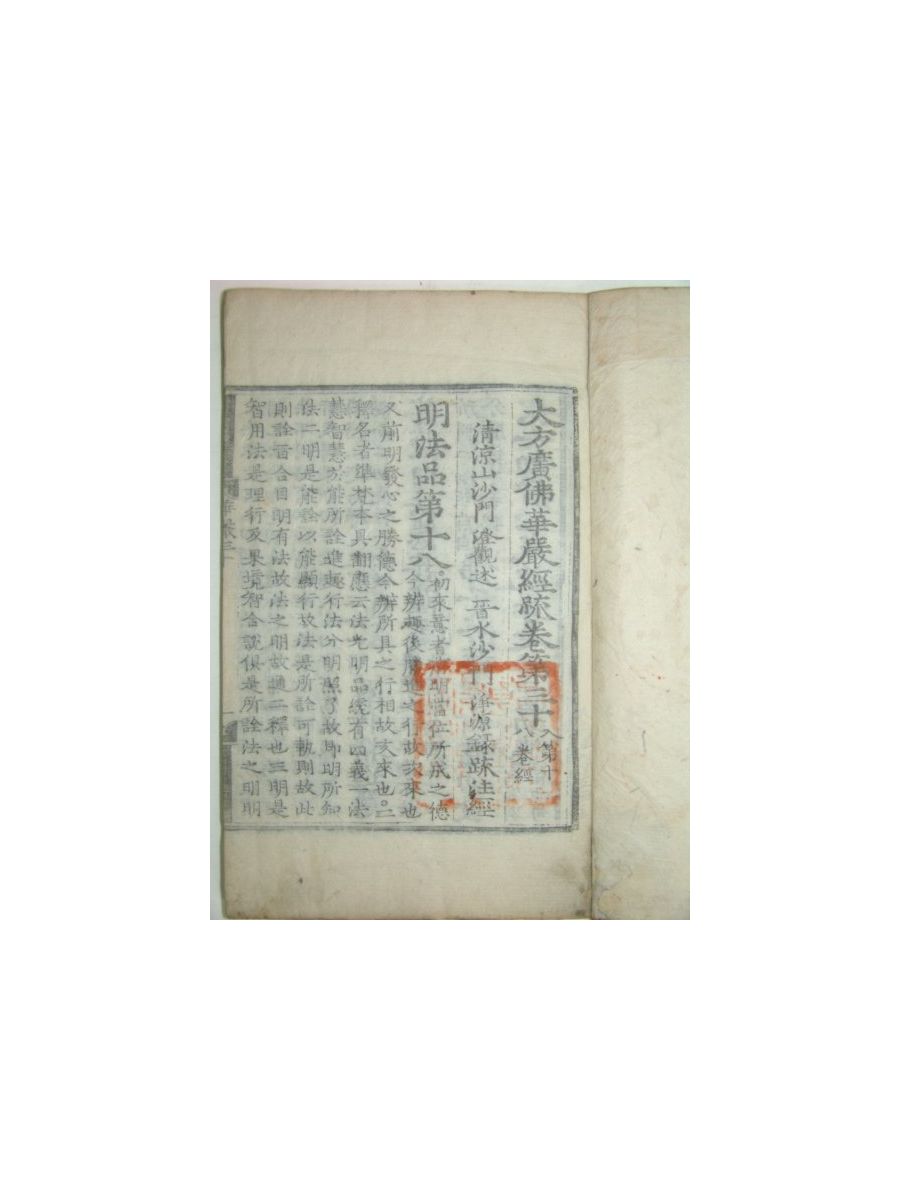 大方廣佛華嚴經疏卷第三十 八第十八卷經
清涼山沙門 澄觀述 晉水沙門 淨源錄疏注經
明法品第十八 初來意者前明當位所成之德
今辨趣後勝進之行故次來也
又前明發心之勝德今辨所具之行相故亥來也二
釋名者準梵本具翻應云法光明品統有四義一法
慧智慧於能所詮進趣行法分明照了故即明所知
法二明是能詮以能顯行故法是所詮可軌則故此
則詮旨合目明有法故法之明故通二釋也三明是
智用法是理行及果境智合說俱是所詮法之明明